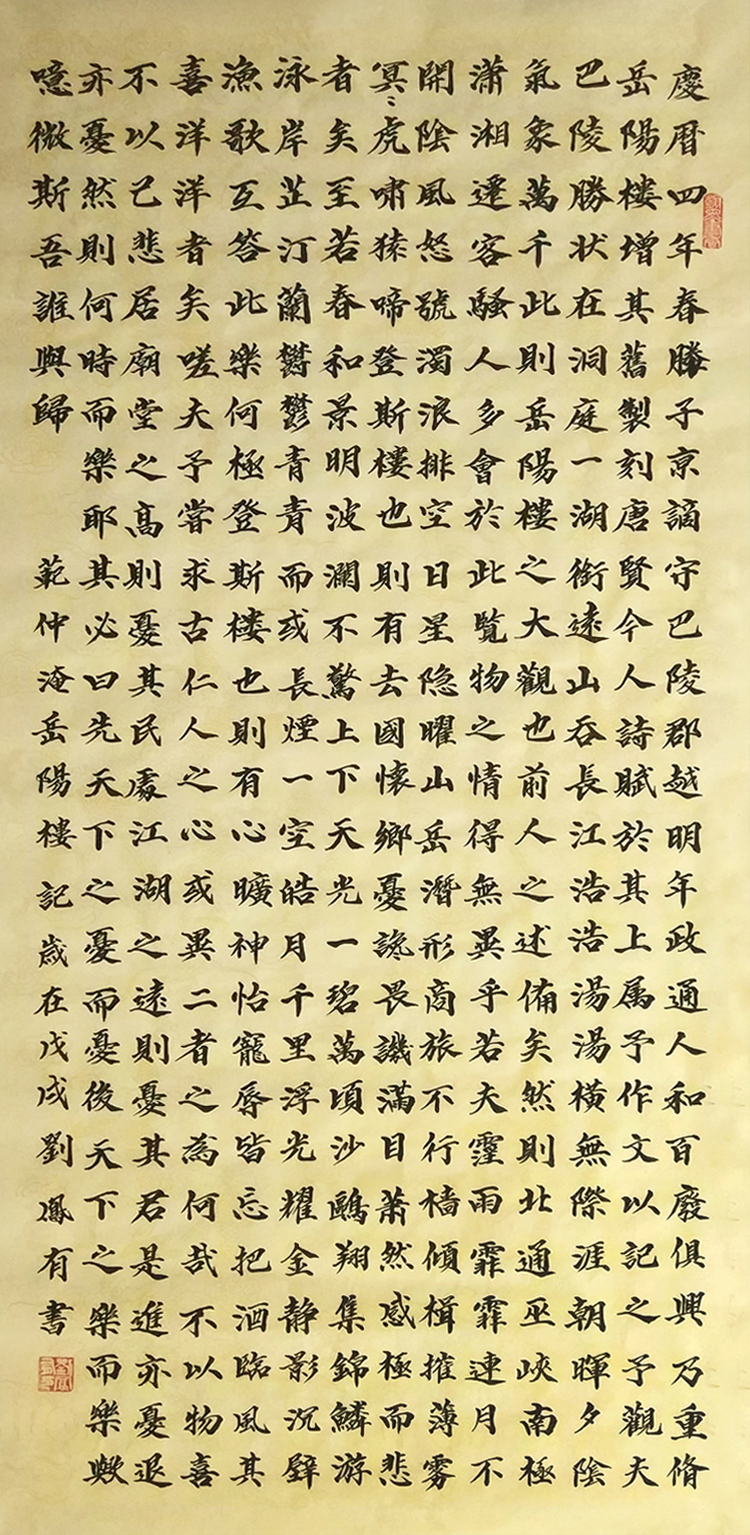 慶暦四年春滕子京謫守巴陵郡越明年政通人和百廢俱興乃重脩
岳陽樓增其舊製刻唐賢今人詩賦於其上属予作文以記之予觀夫
巴陵勝状在洞庭一湖銜遠山吞長江浩浩湯湯橫無際涯朝暉夕陰
氣象萬千此則岳陽樓之大觀也前人之述備矣然則北通巫峽南極
瀟湘遷客騷人多會於此覽物之情得無異乎若夫霪雨霏霏連月不
開陰風怒號濁浪排空日星隐曜山岳潛形商旅不行檣傾楫摧薄霧
冥〻虎嘯猿啼登斯樓也則有去國懷鄉憂讒畏譏滿目蕭然感極而悲
者矣至若春和景明波瀾不驚上下天光一碧萬頃沙鷗翔集錦鱗游
泳岸芷汀蘭鬱鬱青青而或長煙一空皓月千里浮光耀金静影沉璧
漁歌互答此樂何極登斯樓也則有心曠神怡寵辱皆忘把酒臨風其
喜洋洋者矣嗟夫予嘗求古仁人之心或異二者之為何哉不以物喜
不以己悲居廟堂之高則憂其民處江湖之遠則憂其君是進亦憂退
亦憂然則何時而樂耶其必曰先天下之憂而憂後天下之樂而樂歟
噫微斯吾誰與歸 範仲淹岳陽樓記歲在戊戌劉鳳有書